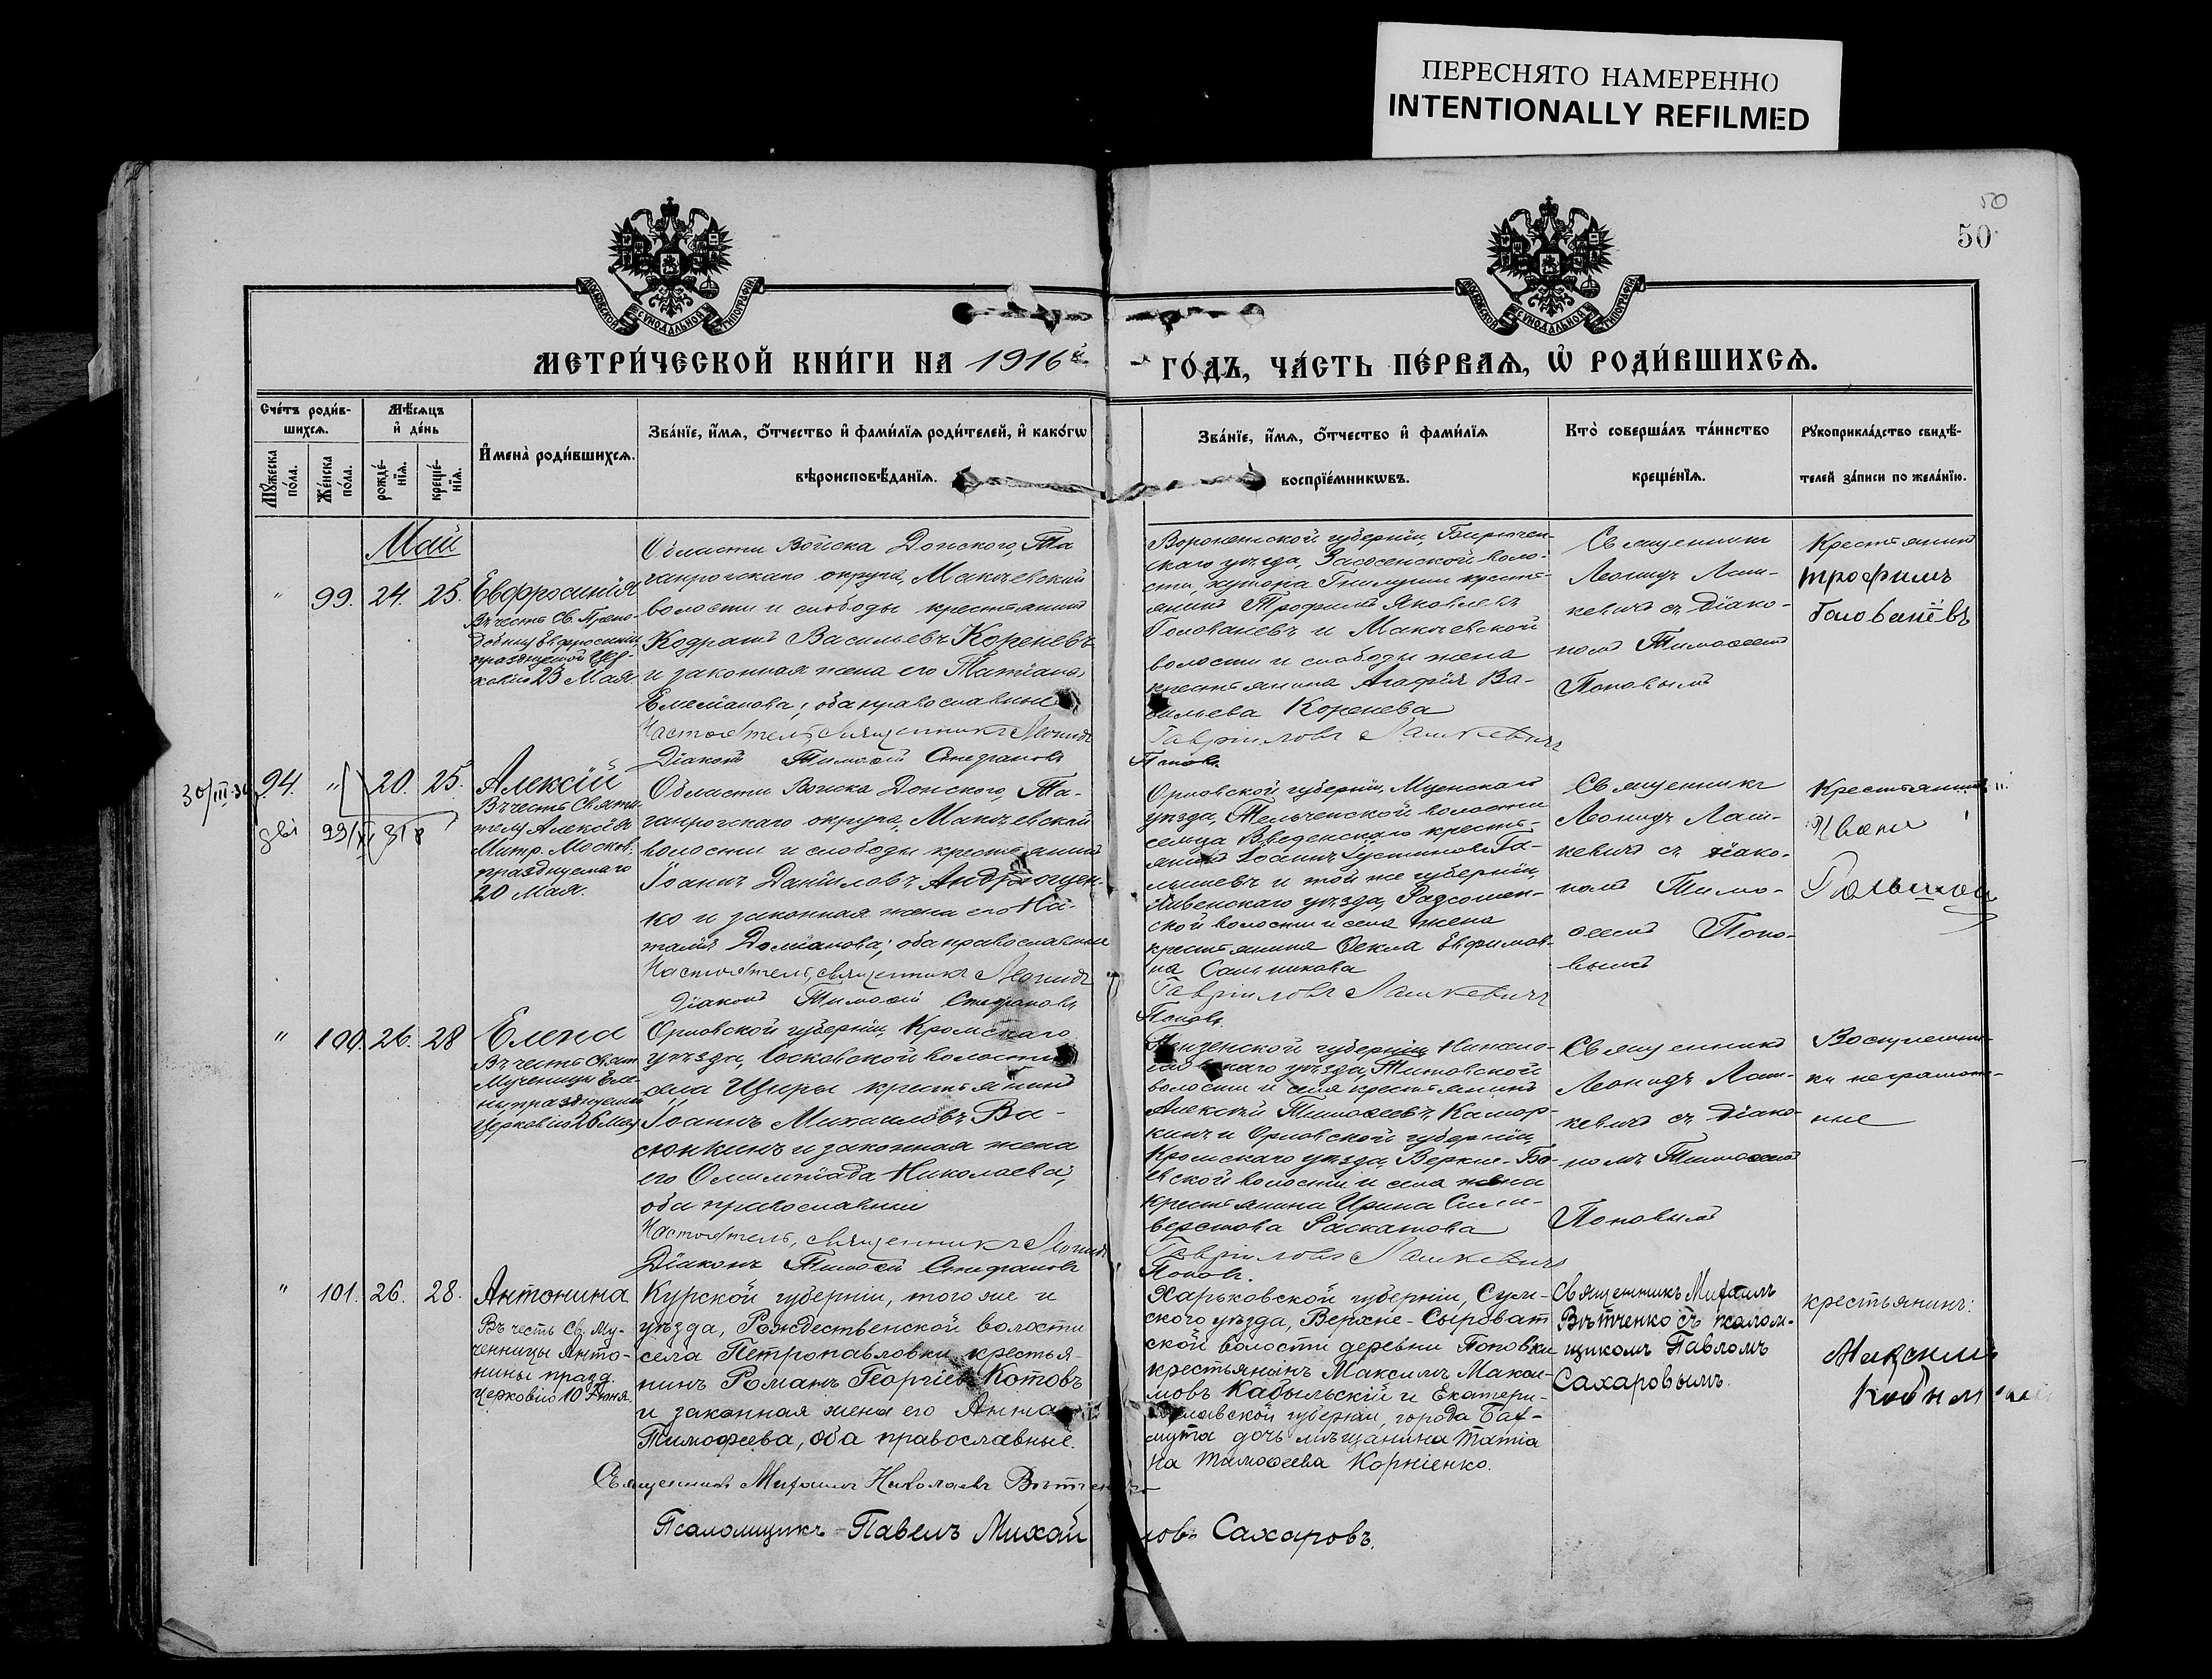 ПЕРЕСНЯТО НАМЕРЕННО
INTENTIONALLY REFILMED
50
50
МЕТРИ́ЧЕСКОЙ КНИ́ГИ НА 1916й
ГО́ДЪ, ЧА́СТЬ ПЕ́РВАѦ, Ѽ РОДИ́ВШИХСѦ.
Сче́тъ роди́в-
шихсѧ.
Мѣ́сѧцъ
и҆ де́нь
Му́жеска по́ла.
Же́нска по́ла.
рожде́-
нїѧ.
креще́-
нїѧ.
И҆мена̀ роди́вшихсѧ.
Зва́нїе, и҆́мѧ, ѻ҆́тчество и҆ фами́лїѧ роди́телей, и҆ како́гѡ
вѣроисповѣ́данїѧ.
Зва́нїе, и҆́мѧ, ѻ҆́тчество и҆ фами́лїѧ
воспрїе́мникѡвъ.
Кто̀ соверша́лъ та́инство
креще́нїѧ.
Рꙋкоприкла́дство свидѣ́-
телей за́писи по жела́нїю.
Май
" 99. 24. 25. Евфросинія
Въ честь Св. Препо-
добныя Евфросиніи,
празднуемой Цер-
ковію 23 Мая.
Области Войска Донского, Та
ганрогскаго округа, Макѣевской
волости и слободы крестьянинъ
Кодратъ Васильевъ Кореневъ
и законная жена его Татіана
Емеліанова; оба православные
Настоятель, священникъ Леонидъ
Діаконъ Тимоѳей Стефановъ
Воронежской губерніи, Бирючен-
скаго уѣзда, Засосенской воло-
сти, хутора крестья-
янинъ Трофимъ Яковлевъ
Голованевъ и Макѣевской
волости и слободы жена
крестьянина Агафія Ва-
сильева Коренева
Гавріиловъ Лашкевичъ
Поповъ.
Священникъ
Леонидъ Лаш-
кевичъ съ діако-
номъ Тимоѳеемъ
Поповымъ
Крестьянинъ
трофимъ
Голованёвъ
30/III-34 94. " 20. 25. Алексій
Въ честь Святи-
теля Алексѣя
Митр. Москов.
празднуемаго
20 Мая.
Области Войска Донского, Та-
ганрогскаго округа, Макѣевской
волости и слободы крестьянинъ
Іоаннъ Даніиловъ Андрющен-
ко и законная жена его На-
талія Даміанова; оба православные
Настоятель, священникъ Леонидъ
Діаконъ Тимоѳей Стефановъ
Орловской губерніи, Мценскаго
уѣзда, Тельченской волости
сельца Введенскаго кресть-
янинъ Іоаннъ Іустиновъ Га-
льшевъ и той же губерніи,
Ливенскаго уѣзда,
ской волости и села жена
крестьянина Ѳекла Евфимов-
на Сальникова
Гавріиловъ Лашкевичъ
Поповъ.
Священникъ
Леонидъ Лаш-
кевичъ съ діако-
номъ Тимо-
ѳеемъ Попо-
вымъ
Крестьянинъ
Иванъ
" 100. 26. 28 Елена
Въ честь Свят.
Мученицы Еле-
ны, празднуемой
Церковію 26 Мая
Орловской губерніи, Кромскаго
уѣзда, волости
села крестьянинъ
Іоаннъ Михаиловъ Ва-
сюнкинъ и законная жена
его Олимпіада Николаева;
оба православные
Настоятель, священникъ Леонидъ
Діаконъ Тимоѳей Стефановъ
Пензенской губерніи, Нижне-
ломовскаго уѣзда, Титовской
волости и села крестьянинъ
Алексѣй Тимоѳеевъ Камор-
кинъ и Орловской губерніи,
Кромскаго уѣзда, Верхне-Бо-
евской волости и села жена
крестьянина Ирина Сили-
верстова Раскатова
Гавріиловъ Лашкевичъ
Поповъ.
Священникъ
Леонидъ Лаш-
кевичъ съ діако-
номъ Тимоѳеемъ
Поповымъ
Воспріемни-
ки неграмот-
ные
" 101. 26. 28. Антонина
Въ честь Св. Му-
ченницы Анто-
нины празд.
Церковію 10 Іюня.
Курской губерніи, того же и
уѣзда, Рождественской волости
села Петропавловки крестья-
нинъ Романъ Георгіевъ Котовъ
и законная жена его Анна
Тимофеева, оба православные.
Священникъ Михаилъ Николаевъ Вѣтченко
Псаломщикъ Павелъ Михайловъ Сахаровъ.
Харьковской губерніи, Сум-
ского уѣзда, Верхне-Сыроват
ской волости деревни Поповки
крестьянинъ Максимъ Макси-
мовъ Кобыльскій и Екатери-
нославской губерніи, города Бах-
мута дочь мѣщанина Татіа
на Тимоѳеева Корніенко.
Священникъ Михаилъ
Вѣтченко съ псалом-
щикомъ Павломъ
Сахаровымъ.
крестьянинъ:
Максимъ